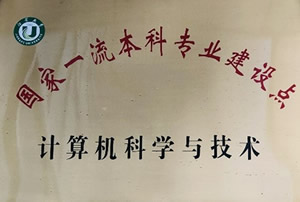 国家一流本科专业建设点
计算机科学与技术